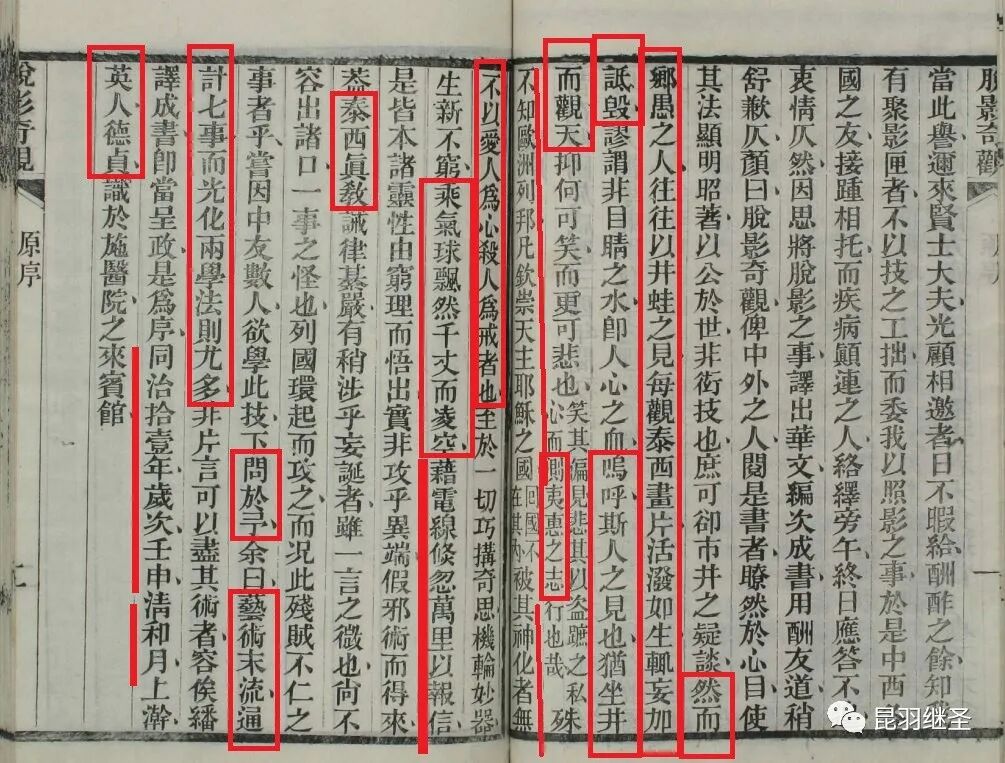 脫影奇觀
一
當此譽邇來賢士大夫光顧相邀者日不暇給酬酢之餘知
有聚影匣者不以技之工拙而委我以照影之事於是中西
國之友接踵相托而疾病顛連之人絡繹旁午終日應答不
衷情仄然因思將脫影之事譯出華文編次成書用酬友道稍
舒歉仄顏曰脫影奇觀俾中外之人閱是書者瞭然於心目使
其法顯明昭著以公於世非衒技也庶可卻市井之疑談然而
鄉愚之人往往以井蛙之見每觀泰西畫片活潑如生輒妄加
詆毀謬謂非目睛之水卽人心之血嗚呼斯人之見也猶坐井
而觀天抑何可笑而更可悲也笑其偏見悲其以盜蹠之私心而測夷惠之志行也哉殊
不知歐洲列邦凡欽崇天主耶穌之國回國不在其內被其神化者無
不以愛人爲心殺人爲戒者也至於一切巧搆奇思機輪妙器
生新不窮乘氣球飄然千丈而凌空藉電線倏忽萬里以報信
是皆本諸靈性由窮理而悟出實非攻乎異端假邪術而得來
葢泰西眞敎誡律綦嚴有稍涉乎妄誕者雖一言之微也尚不
容出諸口一事之怪也列國環起而攻之而况此殘賊不仁之
事者乎嘗因中友數人欲學此技下問於予余曰藝術末流通
計七事而光化兩學法則尤多非片言可以盡其術者容俟繙
譯成書卽當呈政是爲序同治拾壹年歲次壬申清和月上澣
英人德貞識於施醫院之來賓館
脫影奇觀
原序
昆羽继圣